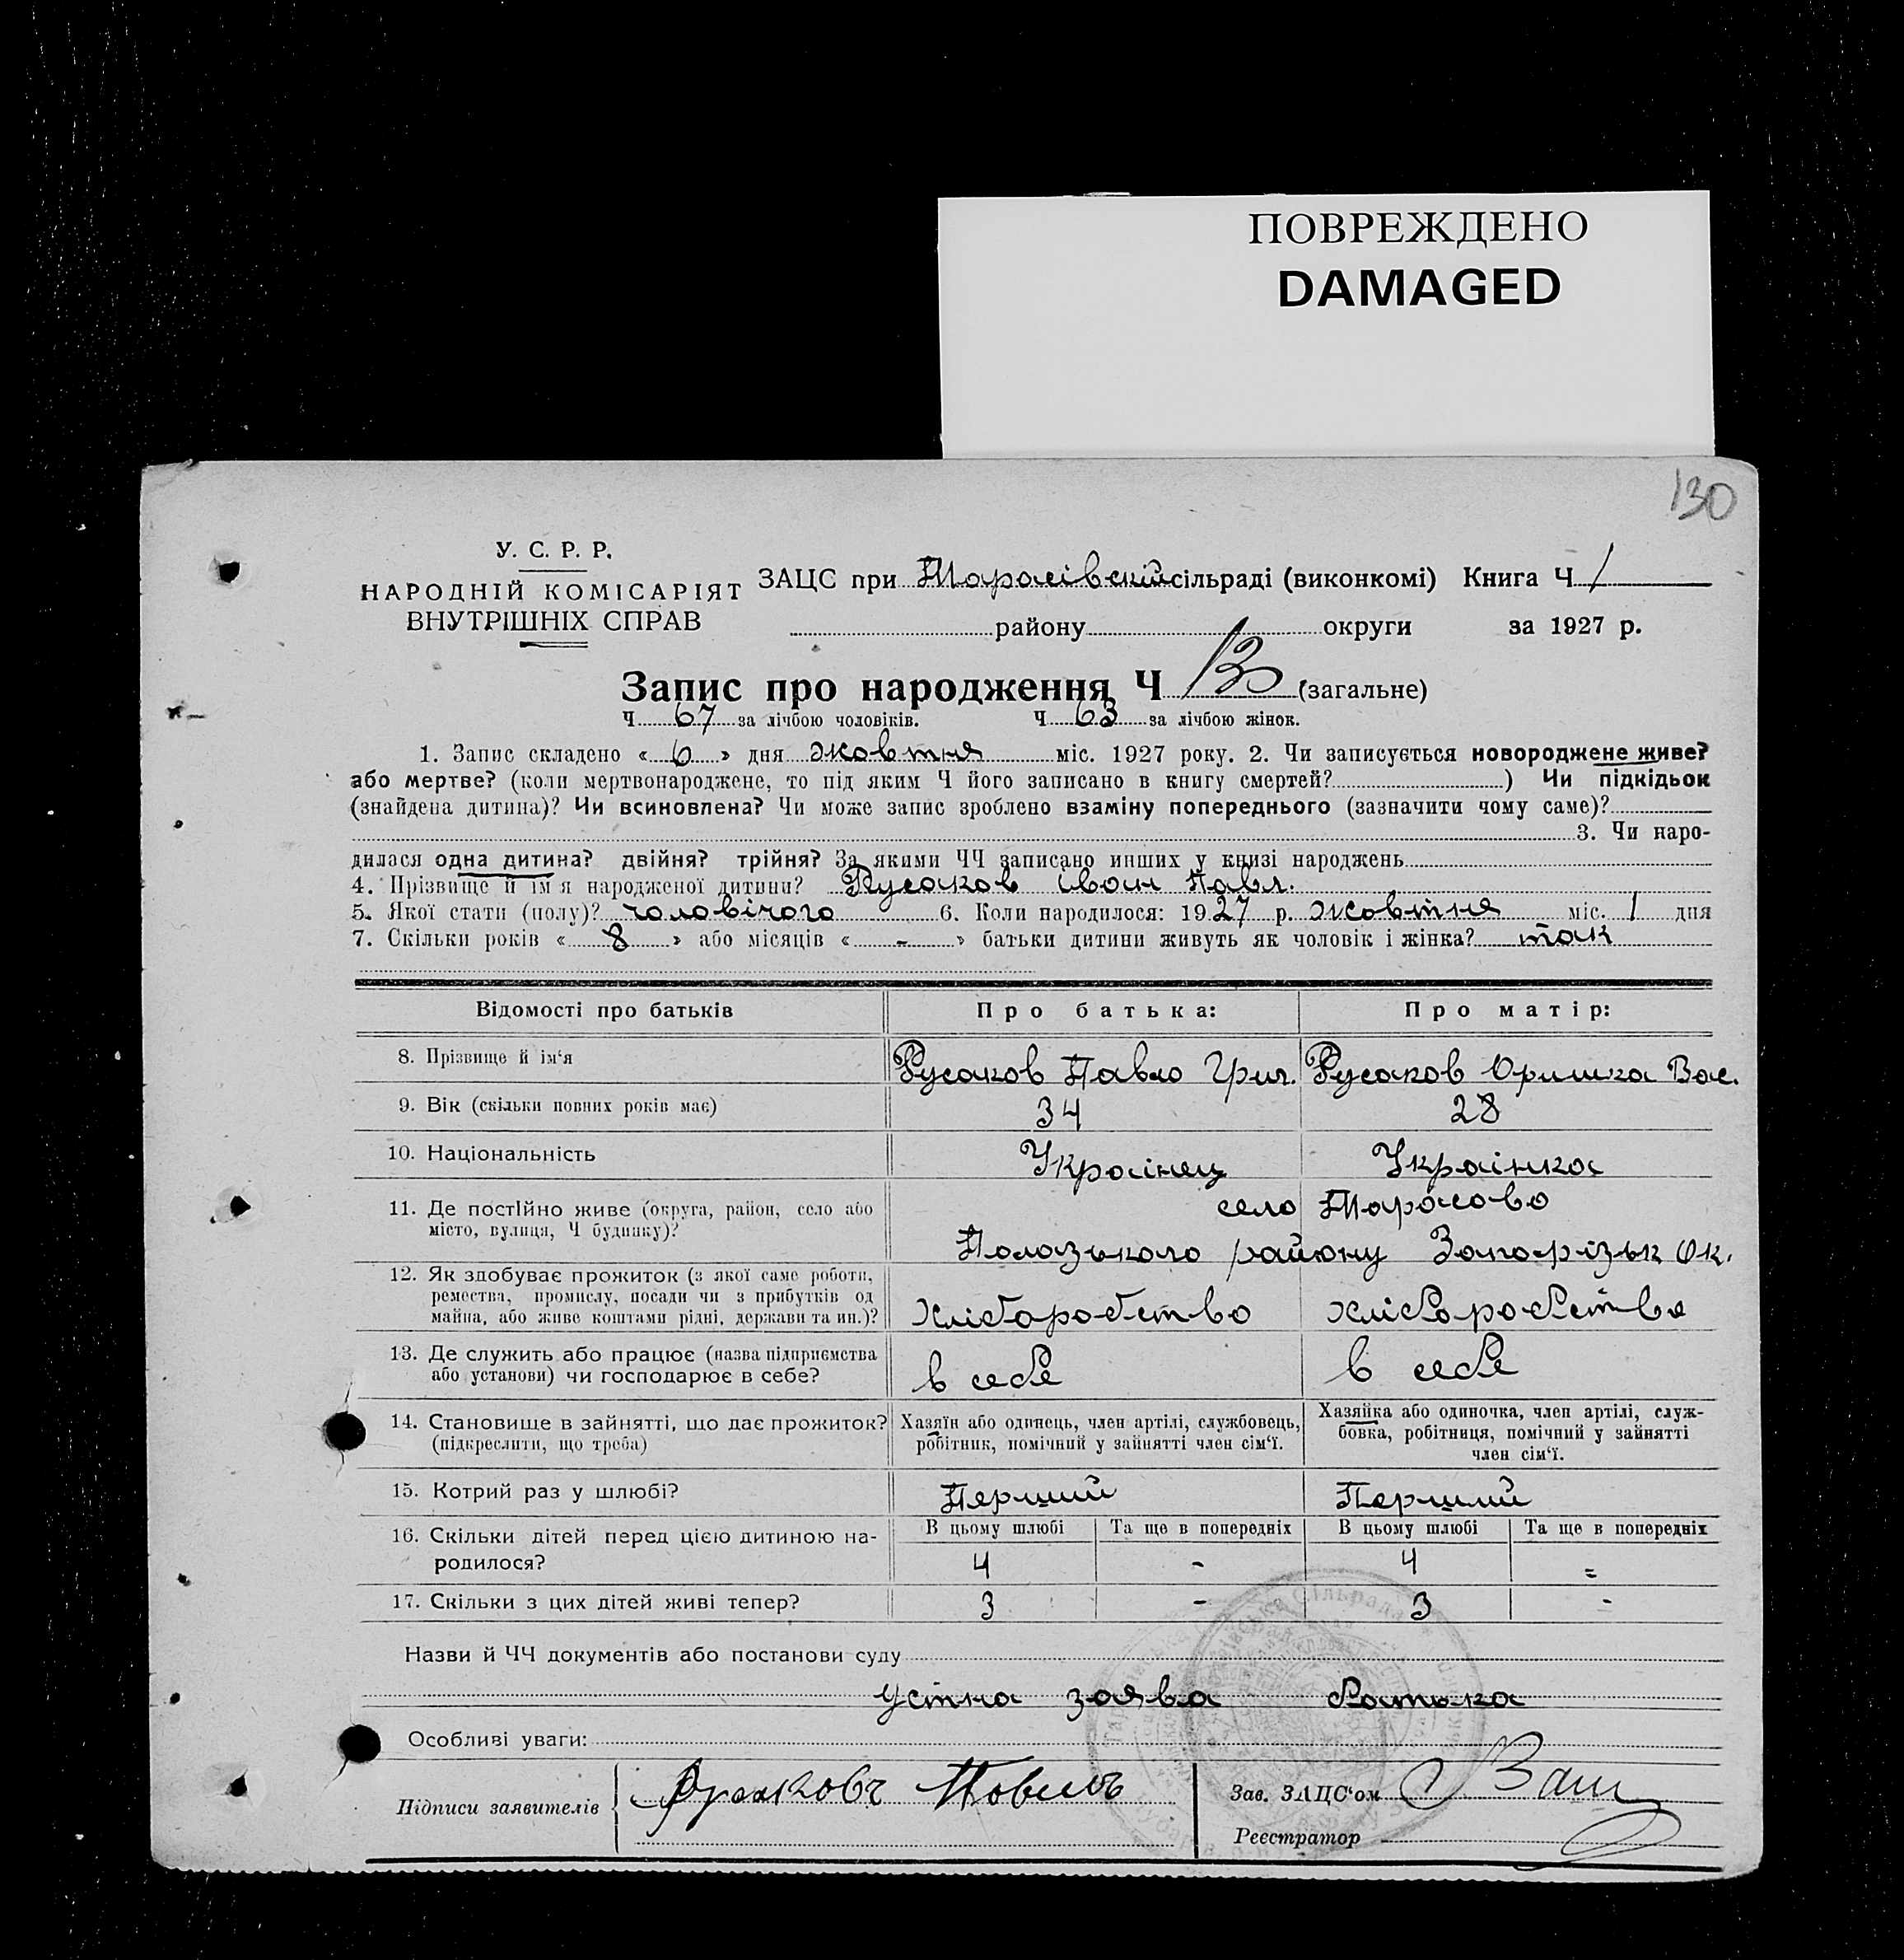 ПОВРЕЖДЕНО
DAMAGED
130
У. С. Р. Р.
НАРОДНІЙ КОМІСАРІЯТ
ВНУТРІШНІХ СПРАВ
ЗАЦС при Тарасівській сільраді (виконкомі) Книга Ч 1
району округи за 1927 р.
Запис про народження Ч 130 (загальне)
Ч 67 за лічбою чоловіків. Ч 63 за лічбою жінок.
1. Запис складено « 6 » дня жовтня міс. 1927 року. 2. Чи записується новороджене живе?
або мертве? (коли мертвонароджене, то під яким Ч його записано в книгу смертей? ) Чи підкідьок
(знайдена дитина)? Чи всиновлена? Чи може запис зроблено взаміну попереднього (зазначити чому саме)?
3. Чи наро-
дилася одна дитина? двійня? трійня? За якими ЧЧ записано инших у книзі народжень
4. Прізвище й ім'я народженої дитини? Русаков Іван Павл.
5. Якої стати (полу)? чоловічого 6. Коли народилося: 1927 р. жовтня міс. 1 дня
7. Скільки років « 8 » або місяців « - » батьки дитини живуть як чоловік і жінка? так
Відомості про батьків Про батька: Про матір:
8. Прізвище й ім'я Русаков Павло Григ. Русаков Оришка Вас.
9. Вік (скільки повних років має) 34 28
10. Національність Українец Українка
11. Де постійно живе (округа, район, село або
місто, вулиця, Ч будинку)?
село Тарасово
Пологзького району Запорізьк Ок.
12. Як здобуває прожиток (з якої саме роботи,
ремества, промислу, посади чи з прибутків од
майна, або живе коштами рідні, держави та ин.)?
хліборобство хліборобство
13. Де служить або працює (назва підприємства
або установи) чи господарює в себе?
в себе в себе
14. Становище в зайнятті, що дає прожиток?
(підкреслити, що треба)
Хазяїн або одинець, член артілі, службовець,
робітник, помічний у зайнятті член сім'ї.
Хазяйка або одиночка, член артілі, служ-
бовка, робітниця, помічний у зайнятті
член сім'ї.
15. Котрий раз у шлюбі? Перший Перший
16. Скільки дітей перед цією дитиною на-
родилося?
В цьому шлюбі Та ще в попередніх В цьому шлюбі Та ще в попередніх
4 - 4 -
17. Скільки з цих дітей живі тепер? 3 - 3 -
Назви й ЧЧ документів або постанови суду
Устна заява батька
Особливі уваги:
Підписи заявителів
Зав. ЗАЦС'ом
Реєстратор